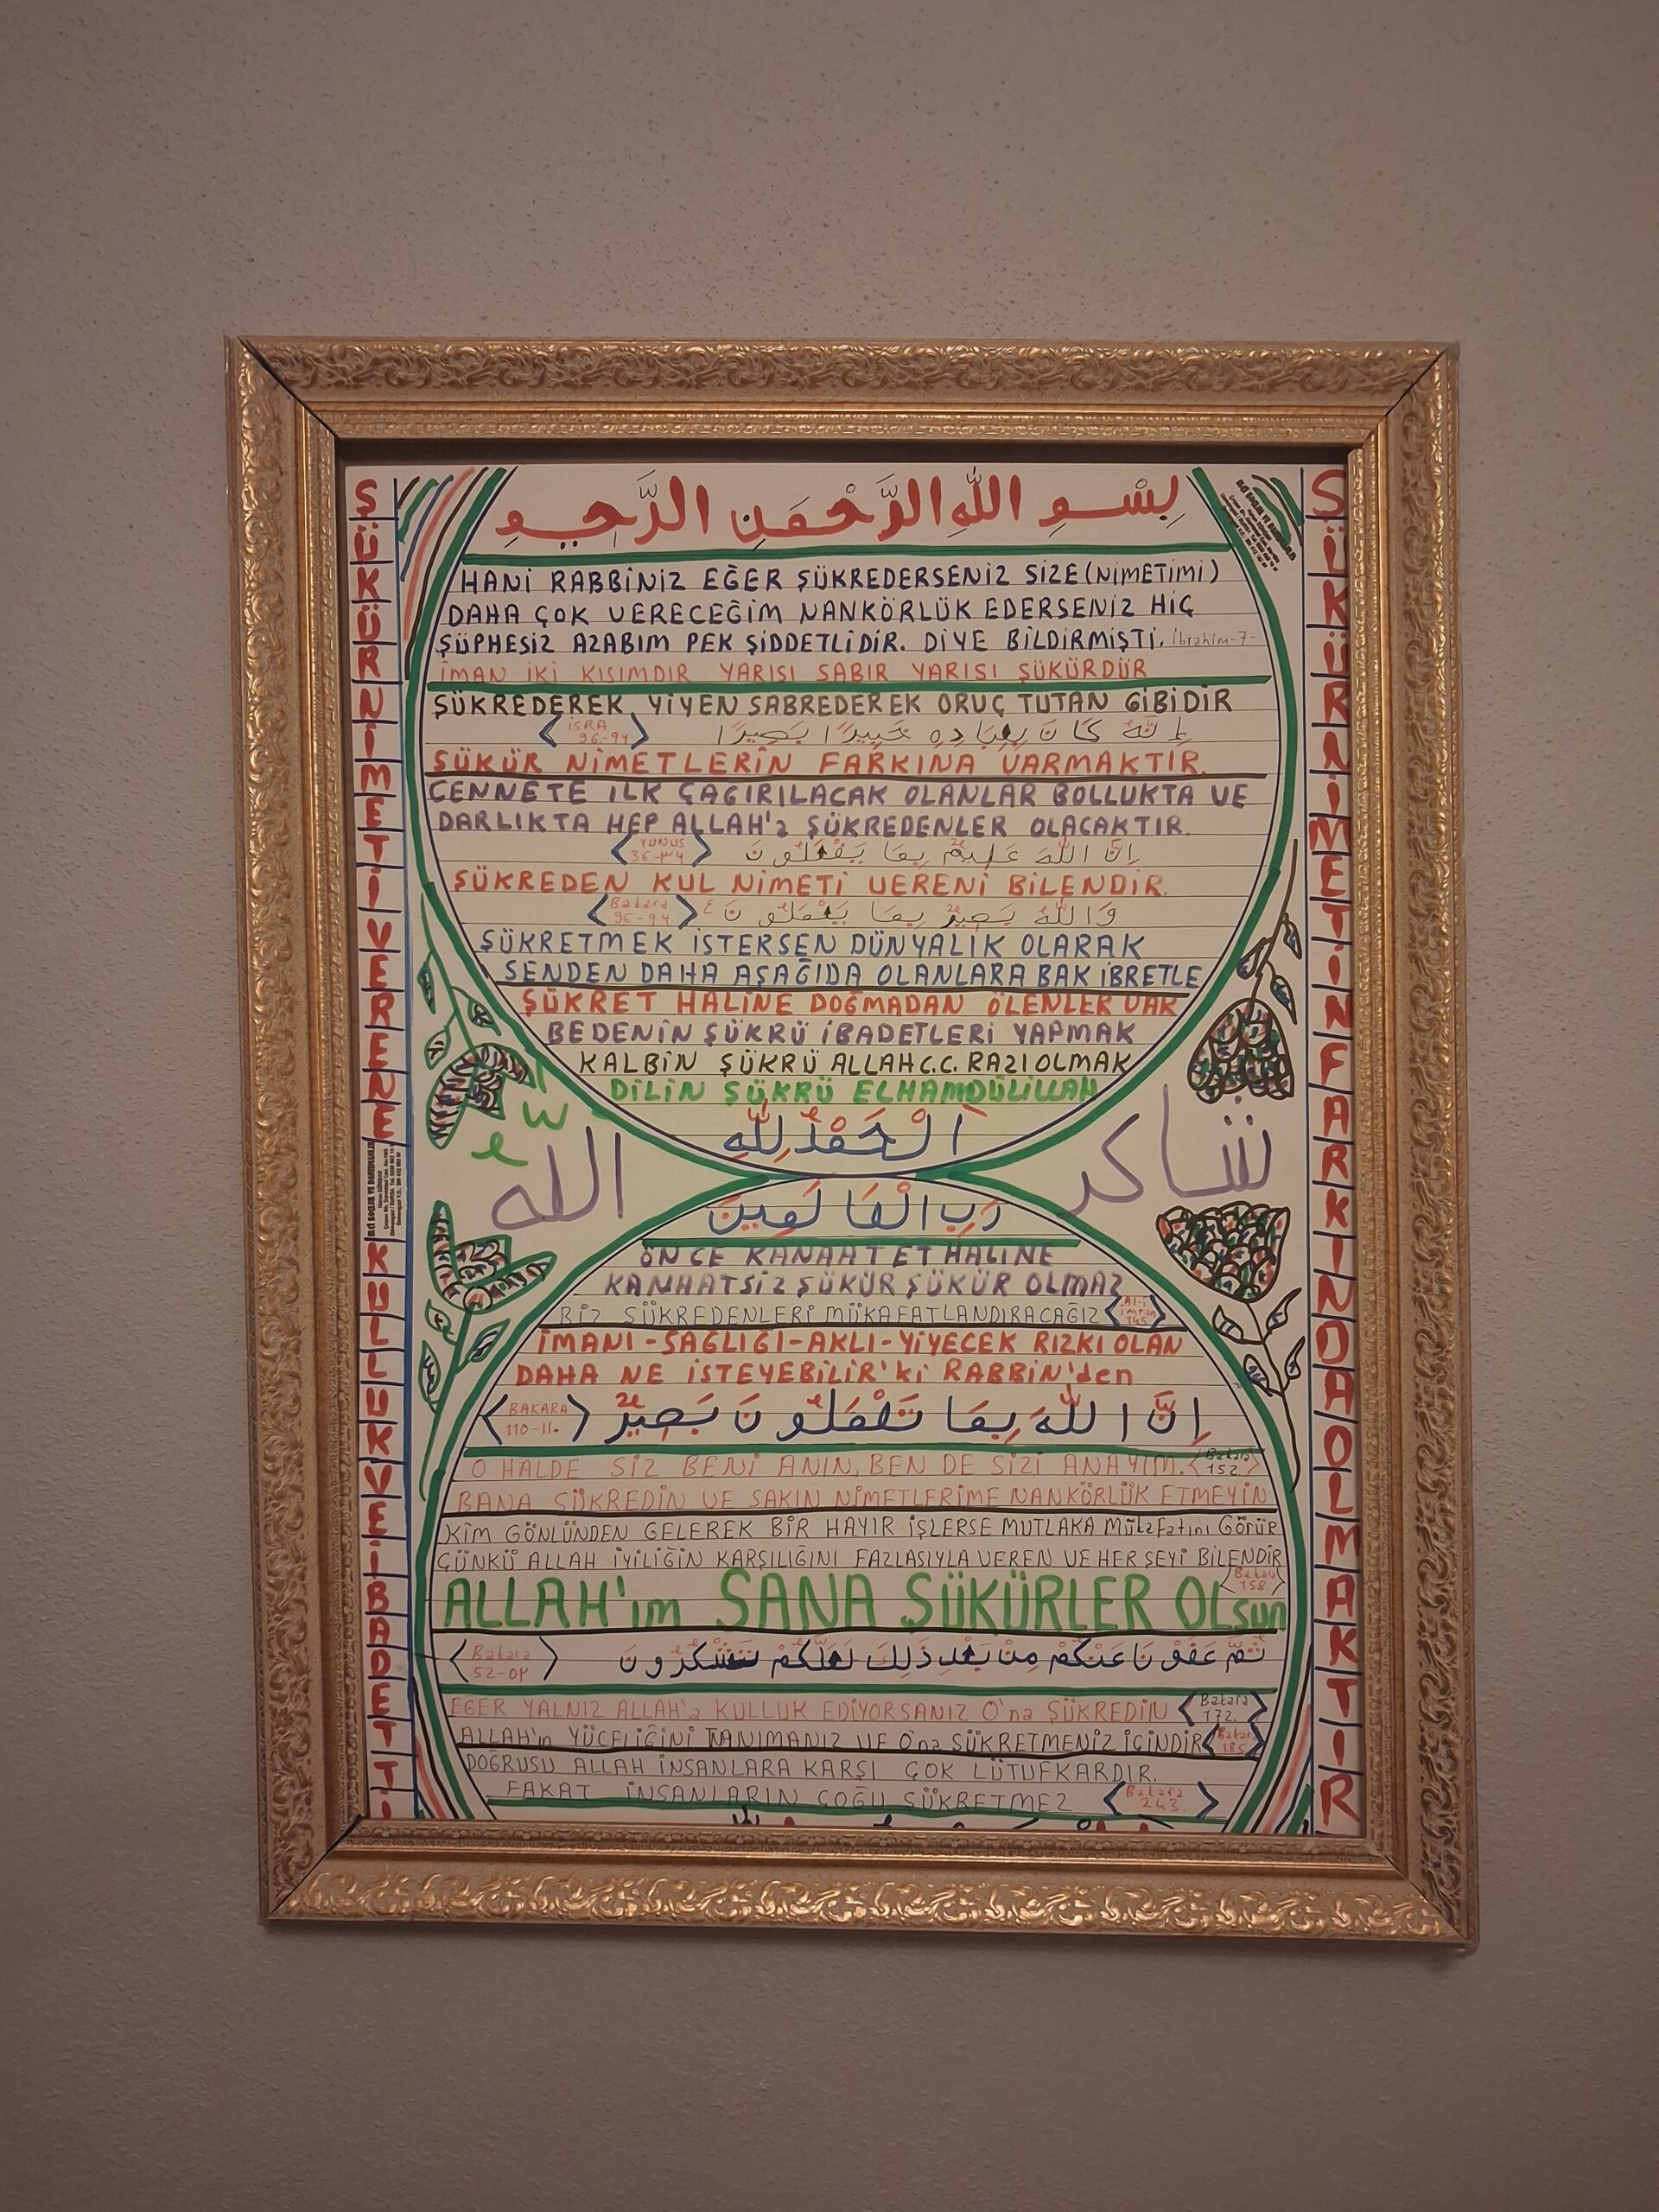 بِسْمِ اللّٰهِ الرَّحْمَنِ الرَّحِيمِ
HANİ RABBİNİZ EĞER ŞÜKREDERSENİZ SİZE (NİMETİMİ)
DAHA ÇOK VERECEĞİM NANKÖRLÜK EDERSENİZ HİÇ
ŞÜPHESİZ AZABIM PEK ŞİDDETLİDİR. DİYE BİLDİRMİŞTİ. İbrahim-7-
İMAN İKİ KISIMDIR YARISI SABIR YARISI ŞÜKÜRDÜR
ŞÜKREDEREK YİYEN SABREDEREK ORUÇ TUTAN GİBİDİR
إِنَّهُ كَانَ بِعِبَادِهِ خَبِيرًا بَصِيرًا
İSRA 96-٩٦
ŞÜKÜR NİMETLERİN FARKINA VARMAKTIR.
CENNETE ILK ÇAGIRILACAK OLANLAR BOLLUKTA VE
DARLIKTA HEP ALLAH'a ŞÜKREDENLER OLACAKTIR.
اِنَّ اللّٰهَ عَلِيمٌ بِمَا يَفْعَلُونَ
YUNUS 36-٣٦
ŞÜKREDEN KUL NİMETİ VERENİ BİLENDİR.
وَاللّٰهُ بَصِيرٌ بِمَا يَعْمَلُونَ
Bakara 96-٩٦
ŞÜKRETMEK İSTERSEN DÜNYALIK OLARAK
SENDEN DAHA AŞAĞIDA OLANLARA BAK İBRETLE
ŞÜKRET HALİNE DOĞMADAN ÖLENLER VAR
BEDENİN ŞÜKRÜ İBADETLERİ YAPMAK
KALBİN ŞÜKRÜ ALLAH C.C. RAZI OLMAK
DİLİN ŞÜKRÜ ELHAMDÜLİLLAH
اَلْحَمْدُ لِلّٰهِ
اللّٰه
شاكر
رَبِّ الْعَالَمِينَ
ÖNCE KANAAT ET HALİNE
KANAATSİZ ŞÜKÜR ŞÜKÜR OLMAZ
BİZ ŞÜKREDENLERİ MÜKAFATLANDIRACAĞIZ Al-i imran 145
İMANI-SAGLIGI-AKLI-YİYECEK RIZKI OLAN
DAHA NE İSTEYEBİLİR'ki RABBİN'den
إِنَّ اللّٰهَ بِمَا تَعْمَلُونَ بَصِيرٌ
BAKARA 110-١١٠
O HALDE SİZ BENİ ANIN, BEN DE SİZİ ANAYIM. Bakara 152
BANA ŞÜKREDİN VE SAKIN NİMETLERİME NANKÖRLÜK ETMEYİN
KİM GÖNLÜNDEN GELEREK BİR HAYIR İŞLERSE MUTLAKA Mükafatını Görür
ÇÜNKÜ ALLAH İYİLİĞİN KARŞILIĞINI FAZLASIYLA VEREN VE HER ŞEYİ BİLENDİR
Bakara 158
ALLAH'ım SANA ŞÜKÜRLER OLsun
ثُمَّ عَفَوْنَا عَنْكُمْ مِنْ بَعْدِ ذَلِكَ لَعَلَّكُمْ تَشْكُرُونَ
Bakara 52-٥٢
EĞER YALNIZ ALLAH'a KULLUK EDİYORSANIZ O'na ŞÜKREDİN Bakara 172
ALLAH'ın YÜCELİĞİNİ TANIMANIZ VE O'na ŞÜKRETMENİZ İÇİNDİR Bakara 185
DOĞRUSU ALLAH İNSANLARA KARŞI ÇOK LÜTUFKARDIR.
FAKAT İNSANLARIN ÇOĞU ŞÜKRETMEZ Bakara 243
ŞÜKÜR NİMETİ VERENE KULLUK VE İBADETTİ
ŞÜKÜR NİMETİN FARKINDA OLMAKTIR